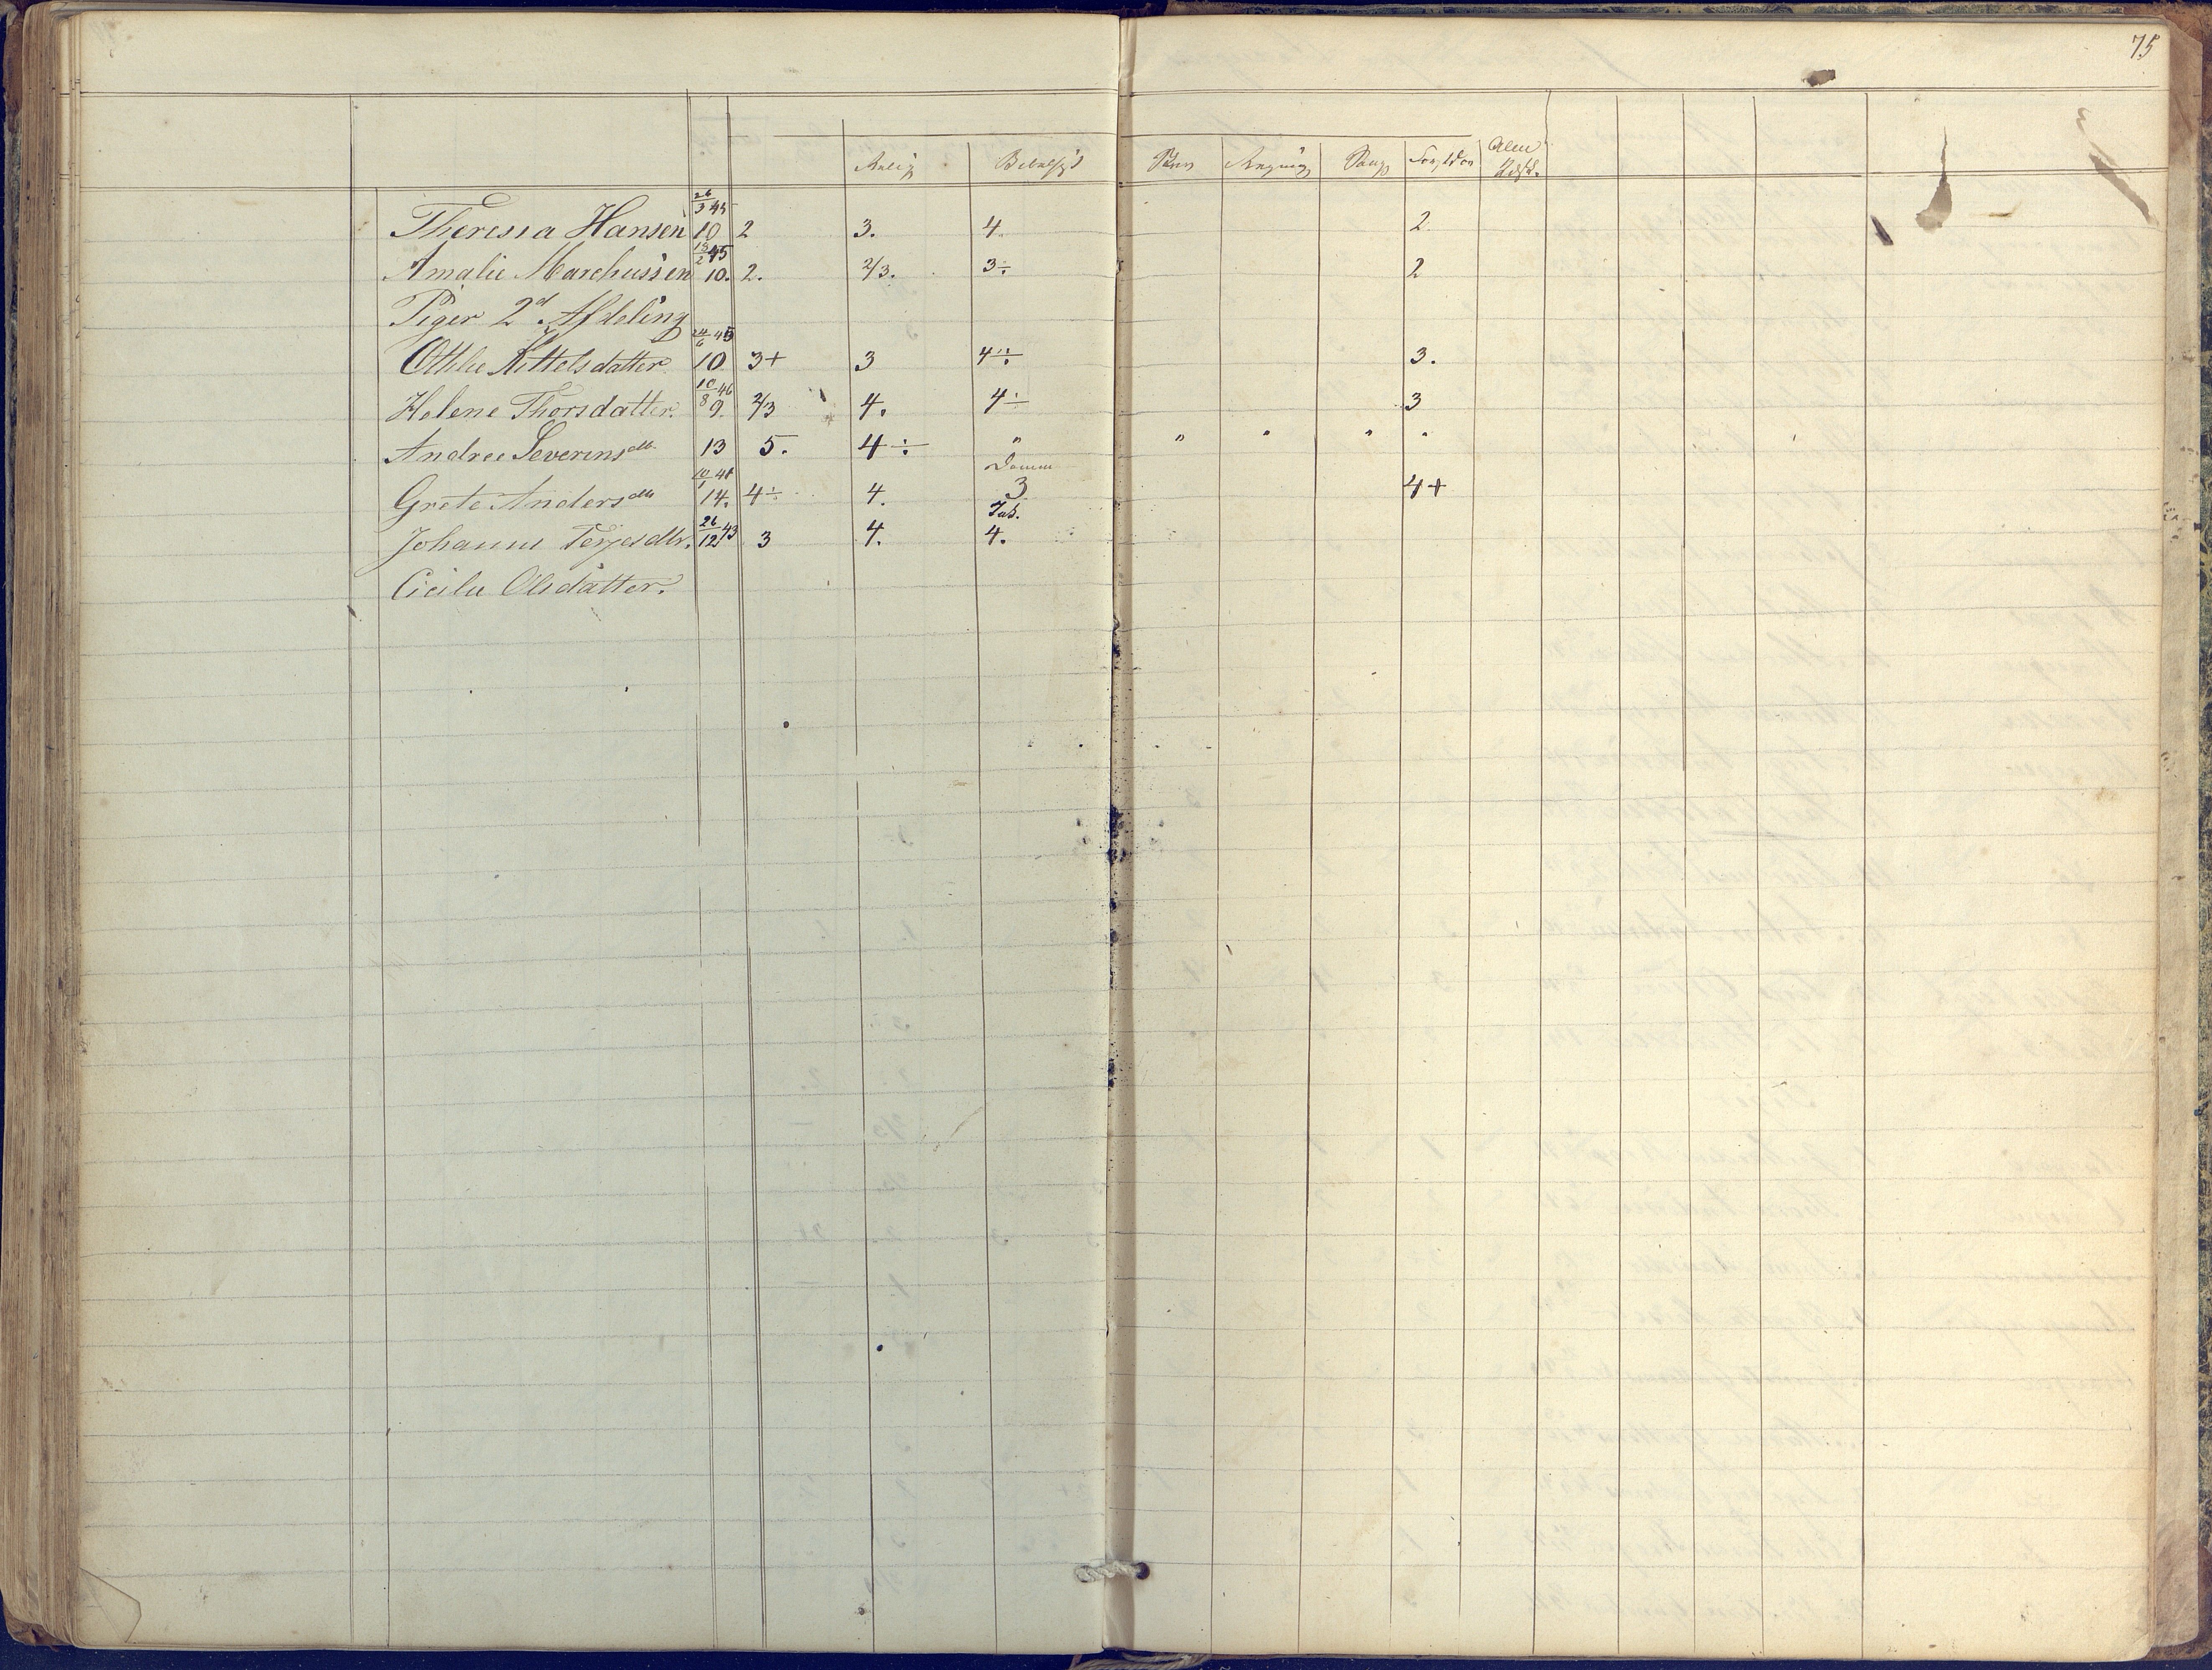 75
Skriv Regning Sang
Theresia Hansen 26/3 45 10 2 3. 4. 2.
Amalie Marchussen 18/2 45 10. 2. 2/3. 3÷ 2
Piger 2d Afdeling
Othlie Kittelsdatter 24/6 45 10 3+ 3 4÷ 3.
Helene Thorsdatter. 10/8 46 9. 2/3 4. 4÷ 3
Andree Severinsdtr 13 5. 4÷ " " " " "
Grete Andersdtr 14. 4÷ 4. 3 4+
Johanne Terjesdtr. 26/12 43 3 4. 4.
Cicilie Olsdatter.